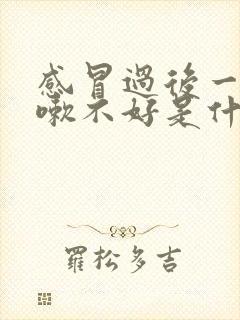 感冒過後一
嗽不好是什
羅松多吉